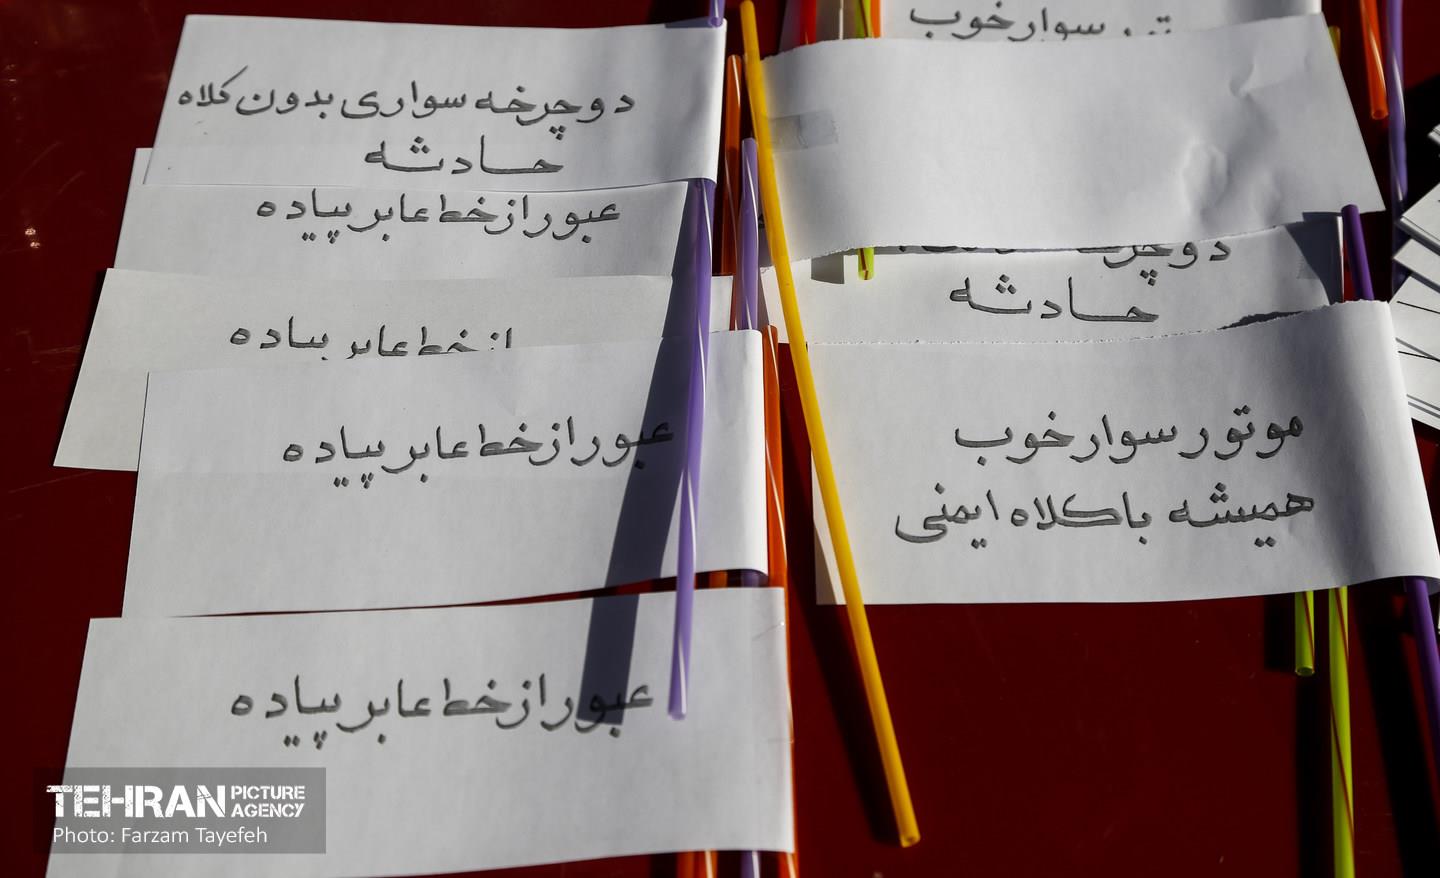 دوچرخه سواری بدون کلاه
حادثه
عبور از خط عابر پیاده
از خط عابر پیاده
عبور از خط عابر پیاده
عبور از خط عابر پیاده
سوار خوب
دوچرخه
حادثه
موتور سوار خوب
همیشه با کلاه ایمنی
TEHRAN PICTURE AGENCY
Photo: Farzam Tayefeh